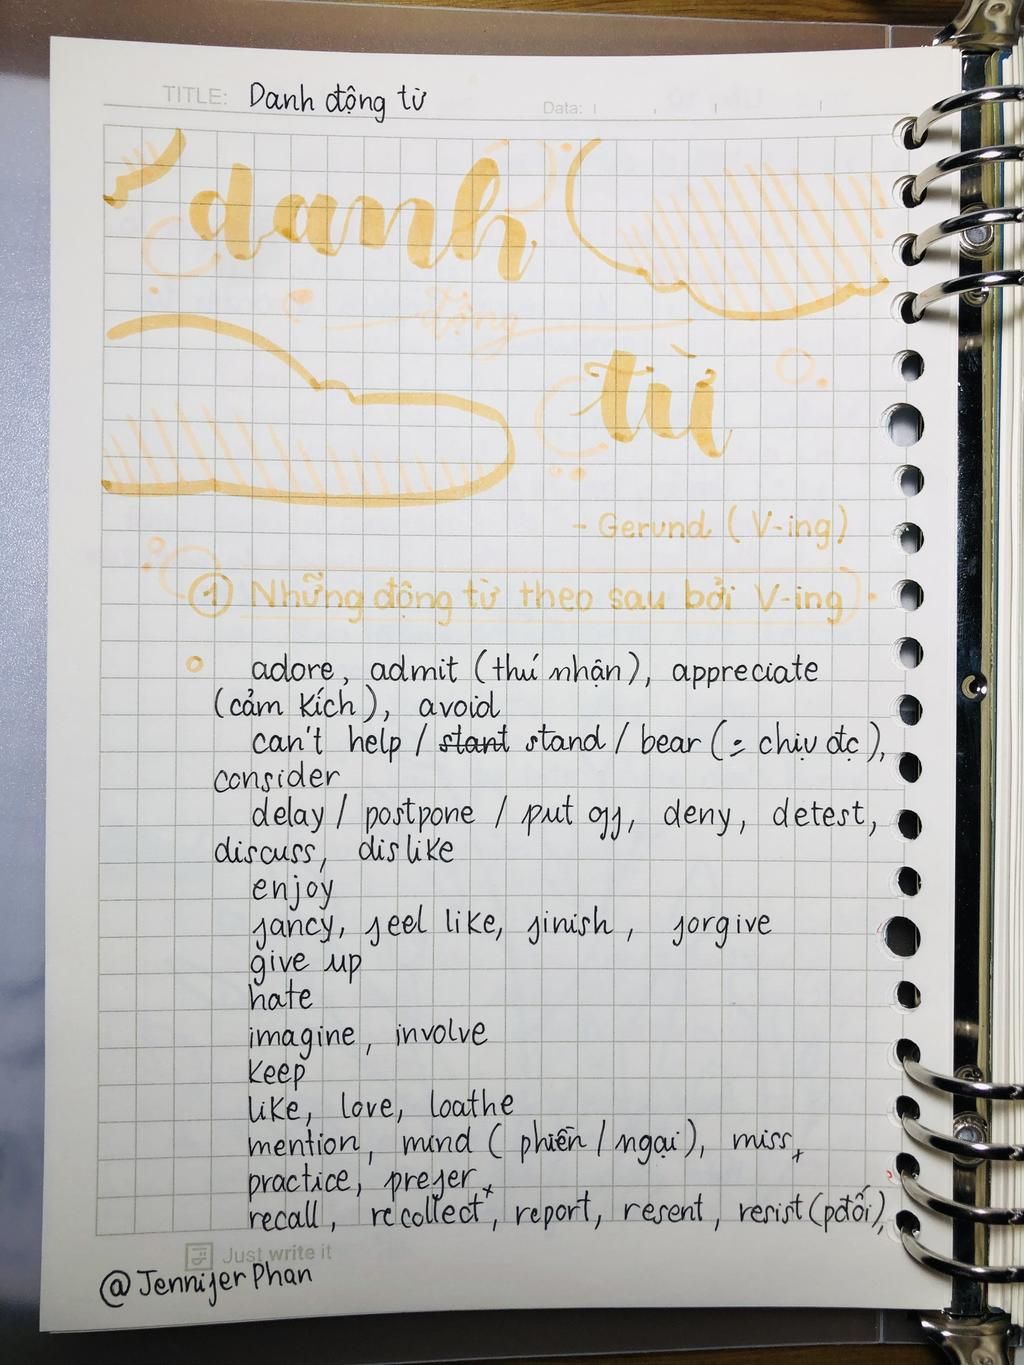 TITLE: Danh động từ
Data:
danh
động
từ
- Gerund (V-ing)
① Những động từ theo sau bởi V-ing
adore, admit (thú nhận), appreciate
(cảm kích), avoid
can't help / start stand / bear (= chịu đc),
consider
delay / postpone / put off, deny, detest,
discuss, dislike
enjoy
fancy, feel like, finish, forgive
give up
hate
imagine, involve
keep
like, love, loathe
mention, mind (phiền / ngại), miss,
practice, prefer
recall, recollect, report, resent, resist (pđối),
Just write it
@Jennifer Phan